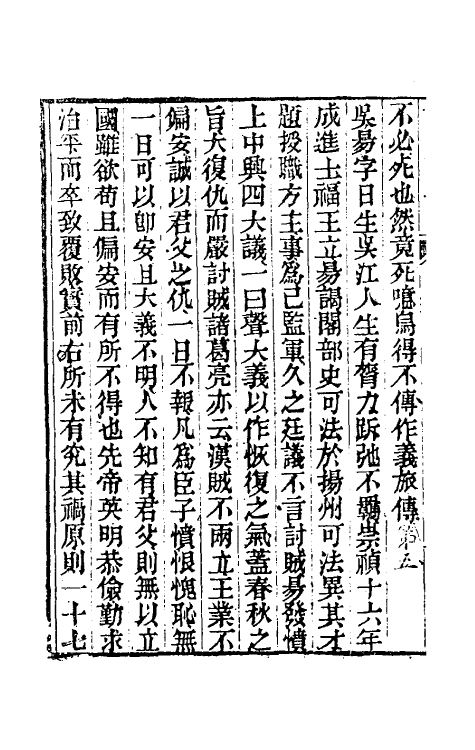 不必死也然竟死噫烏得不傳作義旅傳第五
吳昜字日生吳江人生有膂力跅弛不羈崇禎十六年
成進士福王立昜謁閣部史可法於揚州可法異其才
題授職方主事爲己監軍久之廷議不言討賊昜發憤
上中興四大議一曰聲大義以作恢復之氣蓋春秋之
旨大復仇而嚴討賊諸葛亮亦云漢賊不兩立王業不
偏安誠以君父之仇一日不報凡爲臣子憤恨愧恥無
一日可以卽安且大義不明人不知有君父則無以立
國雖欲苟且偏安而有所不得也先帝英明恭儉勤求
治平而卒致覆敗實前右所未有究其禍原則一十七